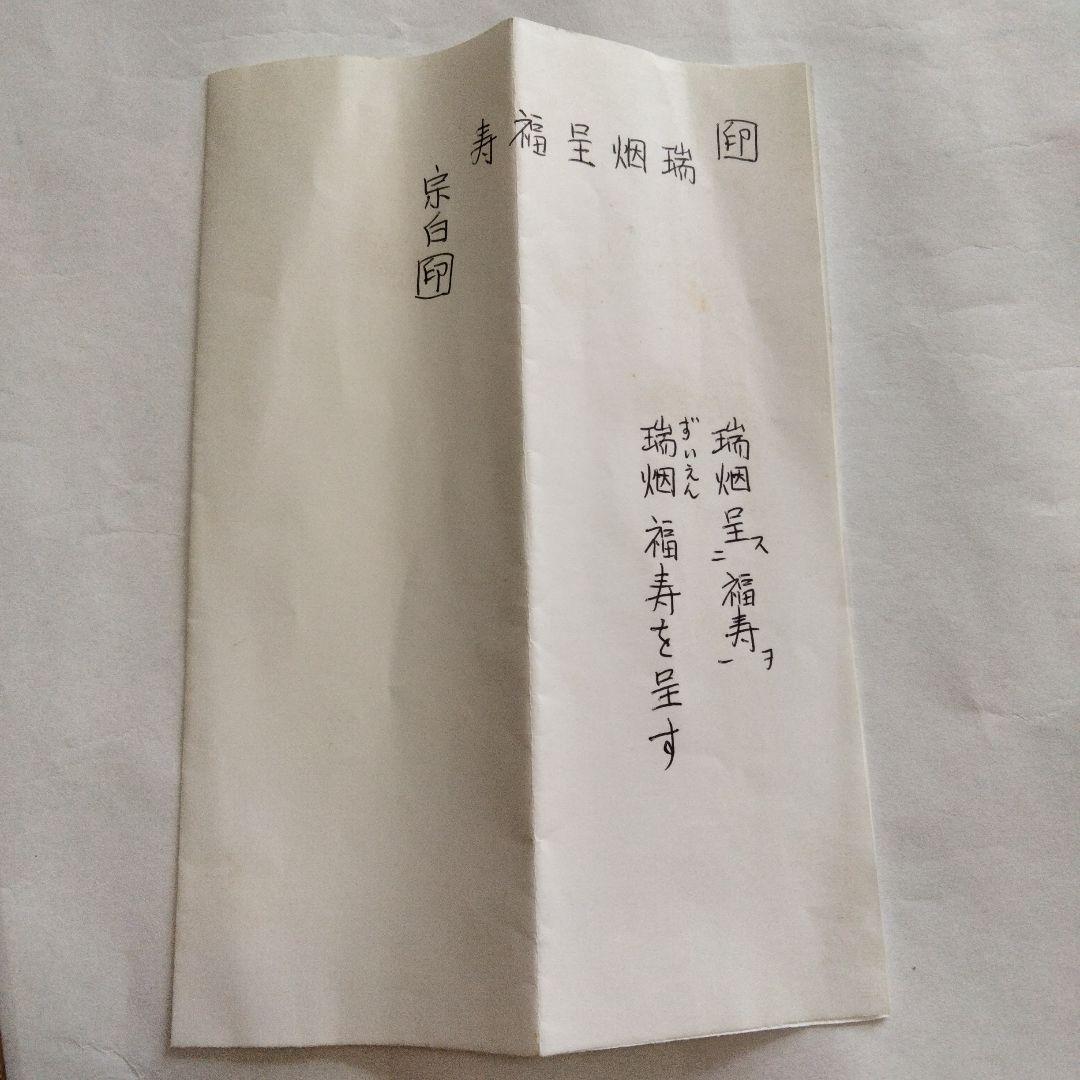 印 瑞烟呈福寿
宗白 印
瑞烟呈ス二福寿ヲ一
ずいえん
瑞烟福寿を呈す